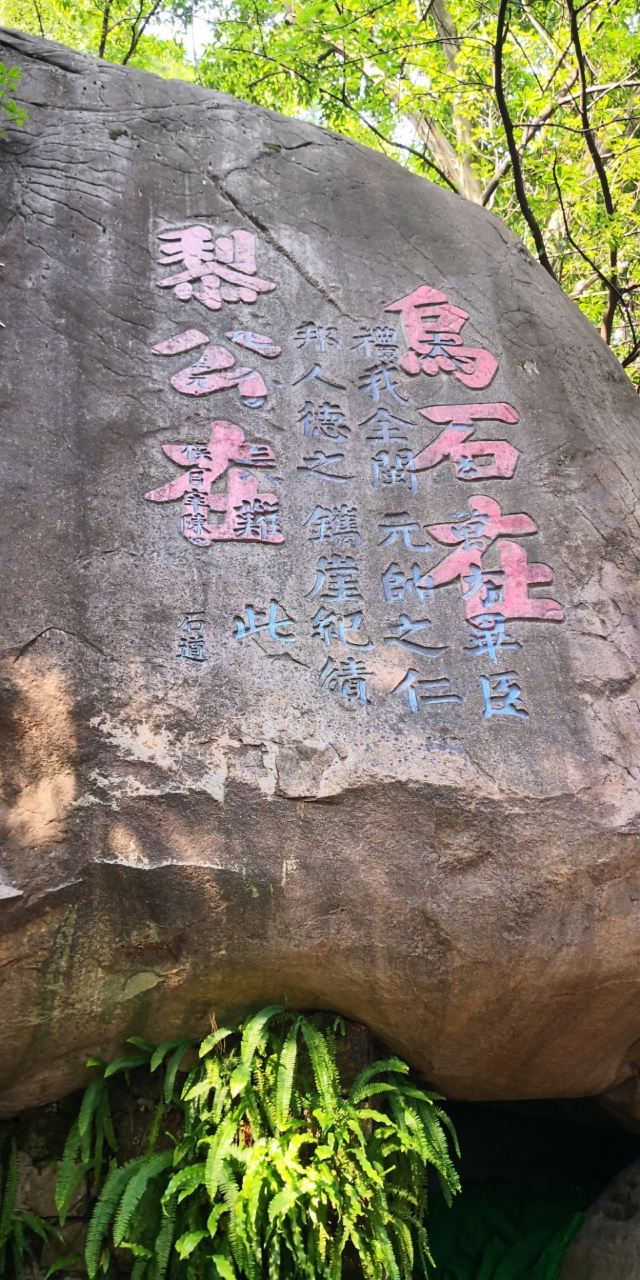 烏石在
黎公在
萬有畢臣
禮我全閩元帥之仁
邦人德之鐫崖紀績
難此
石道